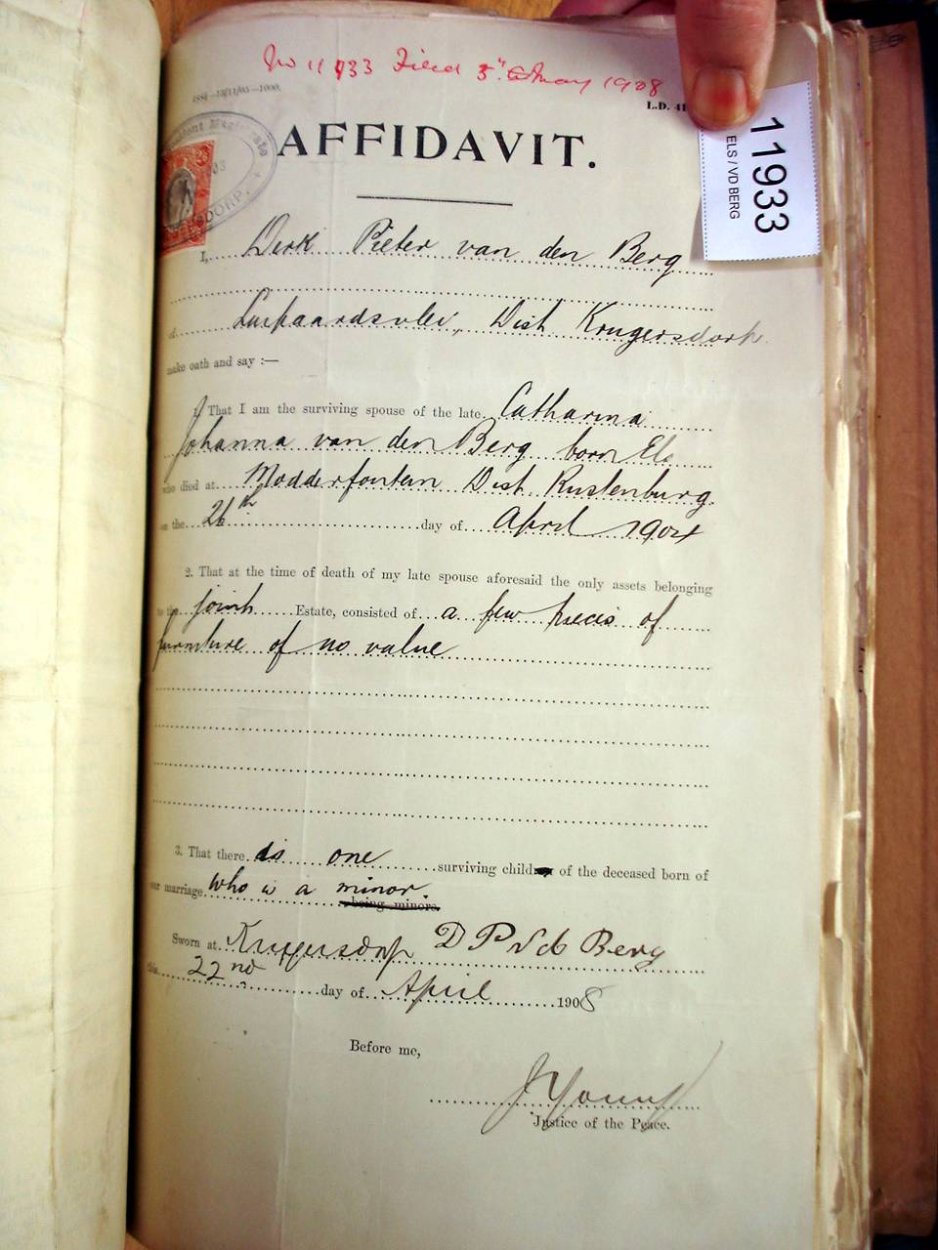 No 11933 Filed 5th May 1908
L.D. 41
AFFIDAVIT.
DORP.
11933
ELS / VD BERG
I, Derk Pieter van den Berg
of Luipaardsvlei, Dist Krugersdorp
make oath and say :—
1. That I am the surviving spouse of the late Catharina
Johanna van den Berg born Els
who died at Modderfontein Dist Rustenburg
on the 26th day of April 1904
2. That at the time of death of my late spouse aforesaid the only assets belonging
to the joint Estate, consisted of a few pieces of
furniture of no value
3. That there is one surviving child of the deceased born of
our marriage who is a minor
being minors.
Sworn at Krugersdorp D P vd Berg
this 22nd day of April 1908
Before me,
J Young
Justice of the Peace.